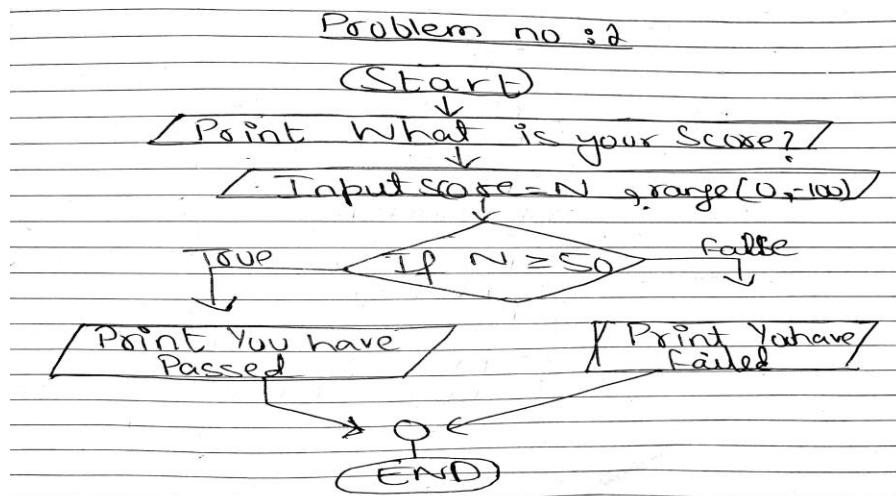 Problem no : 2
Start
Print What is your Score?
Input score = N , range (0,-100)
If N ≥ 50
True
False
Print You have
Passed
Print Yohave
Failed
END